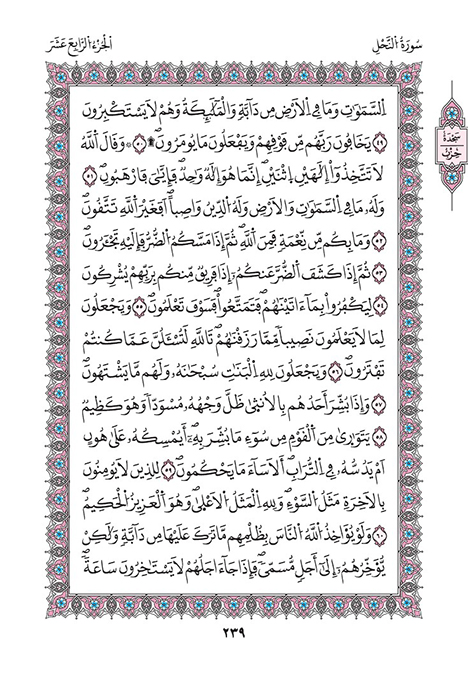 سُورَةُ النَّحْلِ
الجُزْءُ الرَّابِعَ عَشَرَ
سَجْدَة
حِزْب
اِلسَّمَٰوَٰتِ وَمَا فِي اِلَارْضِ مِن دَآبَّةٖ وَالْمَلَٰٓئِكَةُ وَهُمْ لَا يَسْتَكْبِرُونَۖ
٤٩ يَخَافُونَ رَبَّهُم مِّن فَوْقِهِمْ وَيَفْعَلُونَ مَا يُومَرُونَۖ ۩ ٥٠ وَقَالَ اَللَّهُ
لَا تَتَّخِذُوٓاْ إِلَٰهَيْنِ اِثْنَيْنِۖ إِنَّمَا هُوَ إِلَٰهٞ وَٰحِدٞۖ فَإِيَّٰيَ فَارْهَبُونِۖ ٥١
وَلَهُۥ مَا فِي اِلسَّمَٰوَٰتِ وَالَارْضِ وَلَهُ اُلدِّينُ وَاصِباًۖ اَفَغَيْرَ اَللَّهِ تَتَّقُونَۖ
٥٢ وَمَا بِكُم مِّن نِّعْمَةٖ فَمِنَ اَللَّهِۖ ثُمَّ إِذَا مَسَّكُمُ اُلضُّرُّ فَإِلَيْهِ تَجْـَٔرُونَۖ
٥٣ ثُمَّ إِذَا كَشَفَ اَلضُّرَّ عَنكُمُۥٓ إِذَا فَرِيقٞ مِّنكُم بِرَبِّهِمْ يُشْرِكُونَ
٥٤ لِيَكْفُرُواْ بِمَآ ءَاتَيْنَٰهُمْۖ فَتَمَتَّعُواْ فَسَوْفَ تَعْلَمُونَۖ ٥٥ وَيَجْعَلُونَ
لِمَا لَا يَعْلَمُونَ نَصِيباٗ مِّمَّا رَزَقْنَٰهُمْۖ تَاللَّهِ لَتُسْـَٔلُنَّ عَمَّا كُنتُمْ
تَفْتَرُونَۖ ٥٦ وَيَجْعَلُونَ لِلهِ اِلْبَنَٰتِ سُبْحَٰنَهُۥ وَلَهُم مَّا يَشْتَهُونَۖ
٥٧ وَإِذَا بُشِّرَ أَحَدُهُم بِالُانث۪ىٰ ظَلَّ وَجْهُهُۥ مُسْوَدّاٗ وَهُوَ كَظِيمٞ
٥٨ يَتَوَٰر۪ىٰ مِنَ اَلْقَوْمِ مِن سُوٓءِ مَا بُشِّرَ بِهِۦٓۖ أَيُمْسِكُهُۥ عَلَىٰ هُونٍ
اَمْ يَدُسُّهُۥ فِي اِلتُّرَابِۖ أَلَا سَآءَ مَا يَحْكُمُونَۖ ٥٩ لِلذِينَ لَا يُومِنُونَ
بِالَاخِرَةِ مَثَلُ اُلسَّوْءِۖ وَلِلهِ اِلْمَثَلُ اُلَاعْل۪ىٰۖ وَهُوَ اَلْعَزِيزُ اُلْحَكِيمُۖ
٦٠ وَلَوْ يُؤَاخِذُ اُللَّهُ اُلنَّاسَ بِظُلْمِهِم مَّا تَرَكَ عَلَيْهَا مِن دَآبَّةٖ وَلَٰكِنْ
يُّؤَخِّرُهُمُۥٓ إِلَىٰٓ أَجَلٖ مُّسَمّىٗۖ فَإِذَا جَآءَ اجَلُهُمْ لَا يَسْتَٰخِرُونَ سَاعَةٗۖ
٢٣٩